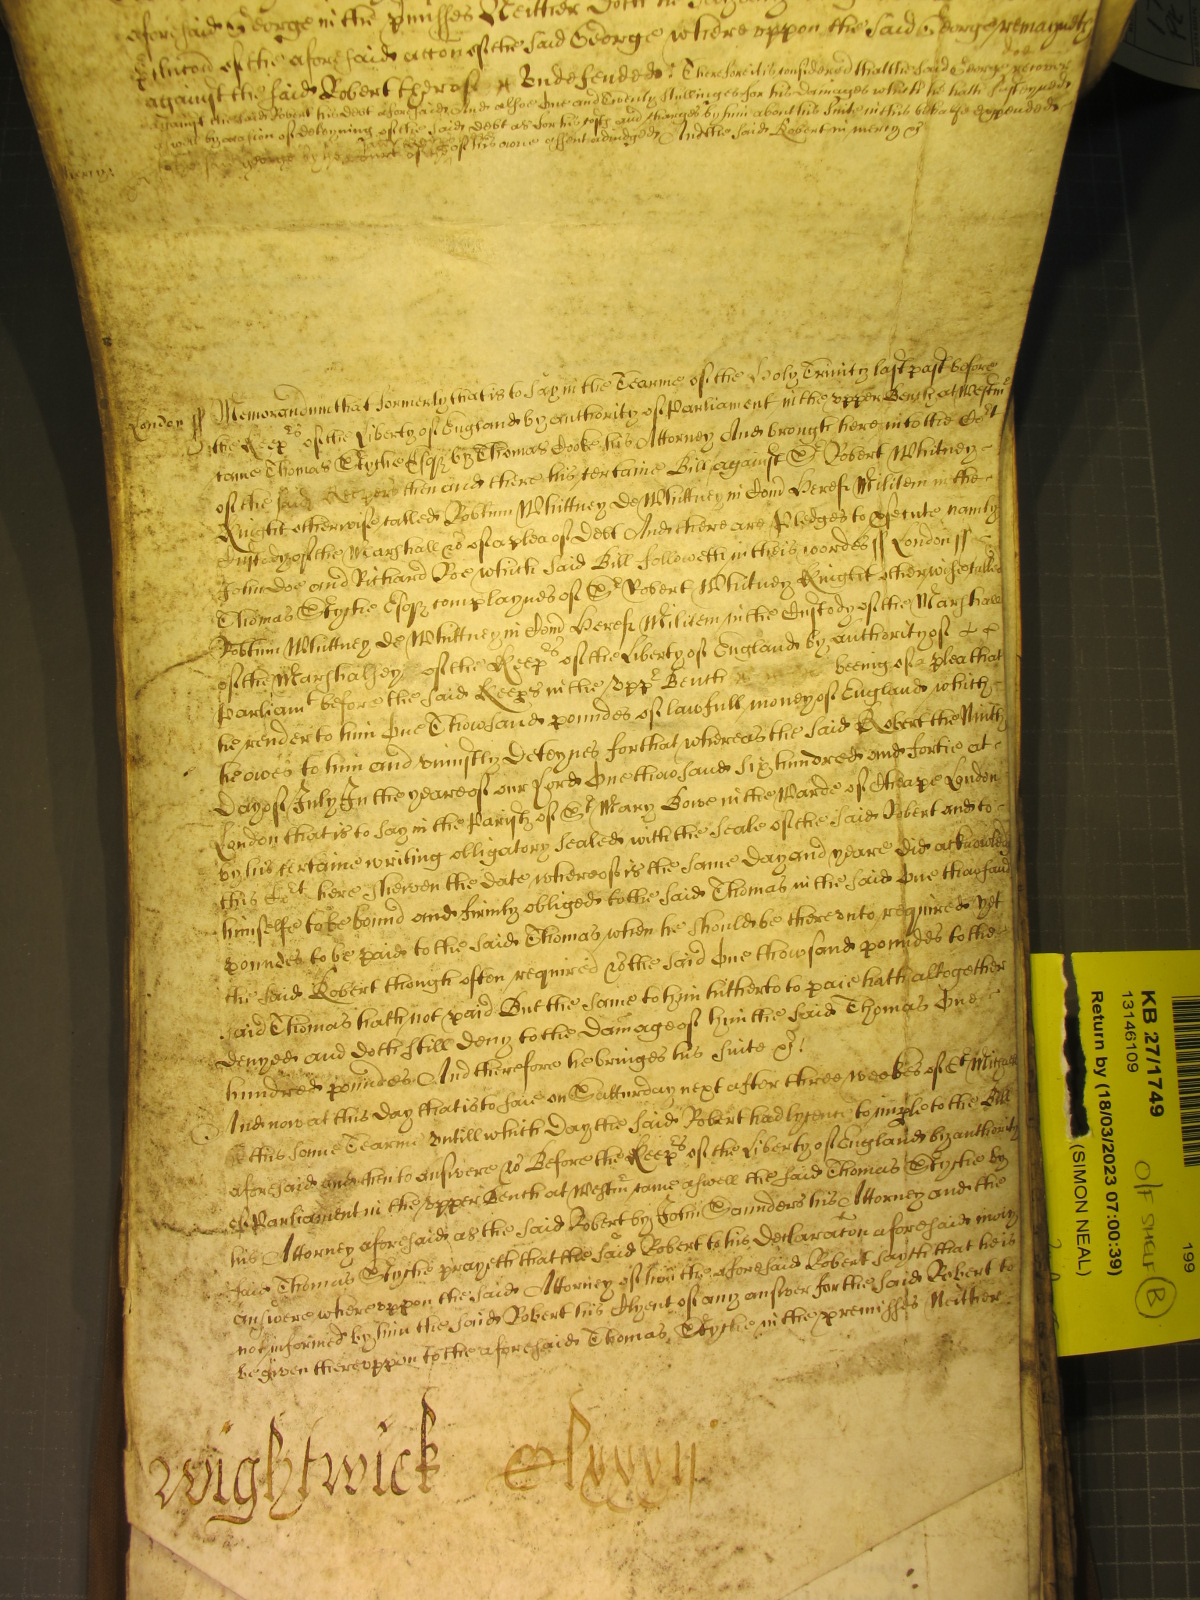 aforesaid George in the premisses Neither doth he
against the said Robert therof Undefended Therefore it is considered that the said George recover
against the said Robert his debt aforesaid And alsoe One and Twenty shillinges for his damages which he hath susteyned
aswell by occasion of deteyning of the said debt as for his costs and charges by him about his suite in this behalfe expended
to the said George by the Court of his owne assent adiudged And the said Robert in mercy &c
London ss Memorandum that formerly that is to say in the Tearme of the Holy Trinity last past before
the Keeprs of the Liberty of England by authority of Parliament in the upper Bench at Westmr
came Thomas Stythe Esqr by Thomas Cooke his Attorney And brought here into the Court
of the said Keepers then and there his certaine Bill against Sr Robert Whitney
Knight otherwise called Robtum Whittney de Whittney in Com Heref Militem in the
Custody of the Marshall &c of a plea of Debt And there are Pledges to prosecute namly
John Doe and Richard Roe which said Bill followeth in theis wordes ss London ss
Thomas Stythe Esqr complaynes of Sr Robert Whitney Knight otherwise called
Robtum Whittney de Whittney in Com Heref Militem in the Custody of the Marshall
of the Marshalsey of the Keeprs of the Liberty of England by authority of
Parliamt before the said Keeprs in the uppr Bench beeing of a plea that
he render to him One Thowsand poundes of lawfull money of England which
he owes to him and uniustly deteynes for that whereas the said Robert the Ninth
day of July In the yeare of our Lord One thowsand six hundred and fortie at
London that is to say in the Parish of St Mary Bowe in the Warde of Cheape London
by his certaine writing obligatory sealed with the seale of the said Robert and to
this Court here shewen the date whereof is the same day and yeare did acknowledg
himselfe to be bound and firmly obliged to the said Thomas in the said One thowsand
poundes to be paid to the said Thomas when he should be thereunto required yet
the said Robert though often required &c the said One thowsand poundes to the
said Thomas hath not paid But the same to him hitherto to paie hath altogether
denyed and doth still deny to the damage of him the said Thomas One
hundred poundes And therefore he bringes his suite &c
And now at this day that is to saie on Satturday next after three weekes of St Michaell
this same Tearme untill which day the said Robert had lycence to imparle to the Bill
aforesaid and then to answere &c Before the Keeprs of the Liberty of England by authority
of Parliament in the upper Bench at Westmr came aswell the said Thomas Stythe by
his Attorney aforesaid as the said Robert by John Saunders his Attorney and the
said Thomas Stythe prayeth that the said Robert to his declaracon aforesaid may
answere whereuppon the said Attorney of him the aforesaid Robert sayth that he is
not informed by him the said Robert his Clyent of any answer for the said Robert to
be given thereuppon to the aforesaid Thomas Stythe in the premisses Neither
Wightwick
KB 27/1749
13146109
Return by (18/03/2023 07:00:39)
(SIMON NEAL)
199
OFF SHELF B